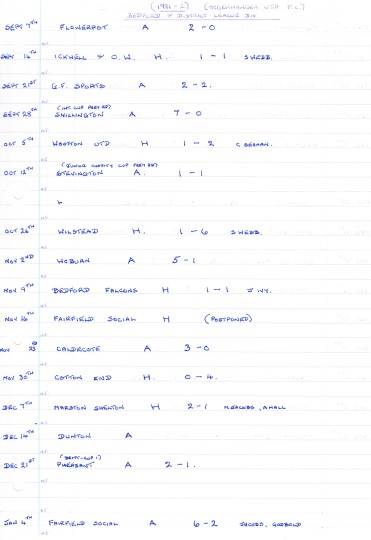 (1991-2)
BEDFORD & DISTRICT LEAGUE DIV
SEPT 7TH FLOWERPOT A 2-0
SEPT 14TH ICKWELL & O.W. H. 1-1 S WEBB.
SEPT 21ST G.F. SPORTS A 2-2.
SEPT 28TH SHILLINGTON A 7-0
OCT 5TH WOOTTON UTD H 1-2
(JUNIOR CHARITY CUP
OCT 12TH STEVINGTON A. 1-1
OCT 26TH WILSTEAD H. 1-6 S WEBB.
NOV 2ND WOBURN A 5-1
NOV 9TH BEDFORD FALCONS H 1-1 J IVY.
NOV 16TH FAIRFIELD SOCIAL H (POSTPONED)
NOV 23RD CALDECOTE A 3-0
NOV 30TH COTTON END H. 0-4.
DEC 7TH MARSTON SHELTON H 2-1
DEC 14TH DUNTON A
DEC 21ST PHEASANT A 2-1.
JAN 4TH FAIRFIELD SOCIAL A 6-2 JACOBS,